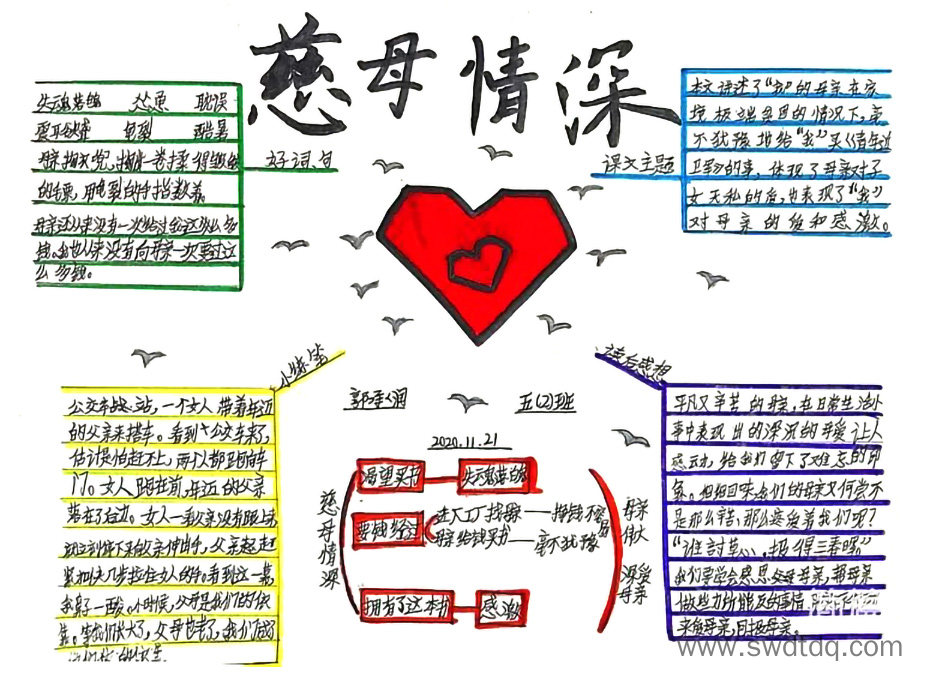 慈母情深
失魂落魄 怂恿 耽误
震耳欲聋 皲裂 酷暑
母亲掏衣兜，掏出一卷揉得皱皱
的毛票，用皲裂的手指数着。
母亲还从来没有一次给过我这么多
钱。我也从来没有向母亲一次要过这
么多钱。
好词句
课文主题
本文讲述了“我”的母亲在家
境极端贫困的情况下，毫
不犹豫地给“我”买《青年近
卫军》的事，体现了母亲对子
女无私的爱，也表现了“我”
对母亲的爱和感激。
小练笔
公交车战站，一个女人带着年迈
的父亲来搭车。看到公交车来了，
估计是怕赶不上，两个人都跑向车
门。女人跑在前，年迈的父亲
落在了后边。女人一看父亲没有跟上来
就立刻停下来向父亲伸出手，父亲赶
紧加快几步拉住女人的手。看到这一幕
我鼻子一酸。小时候，父母是我们的依
靠。当我们长大了，父母也老了，我们
郭 润 五(2)班
2020.11.21
慈母情深
渴望买书 失魂落魄
要钱经过 去工厂找母亲——挣钱不容易
母亲给钱买书——毫不犹豫
拥有了这本书 感激
母亲伟大
深爱母亲
读后感想
平凡又辛苦的母亲，在日常生活小
事中表现出的深沉的母爱让人
感动，给我们留下了难忘的印
象。细细回味我们的母亲又何尝不
是那么辛苦，那么疼爱着我们呢？
“谁討草心，报得三春晖”
我们要学会感恩父母母亲，帮母亲
做些力所能及的事情
来爱母亲，回报母亲。
www.swdtdq.com